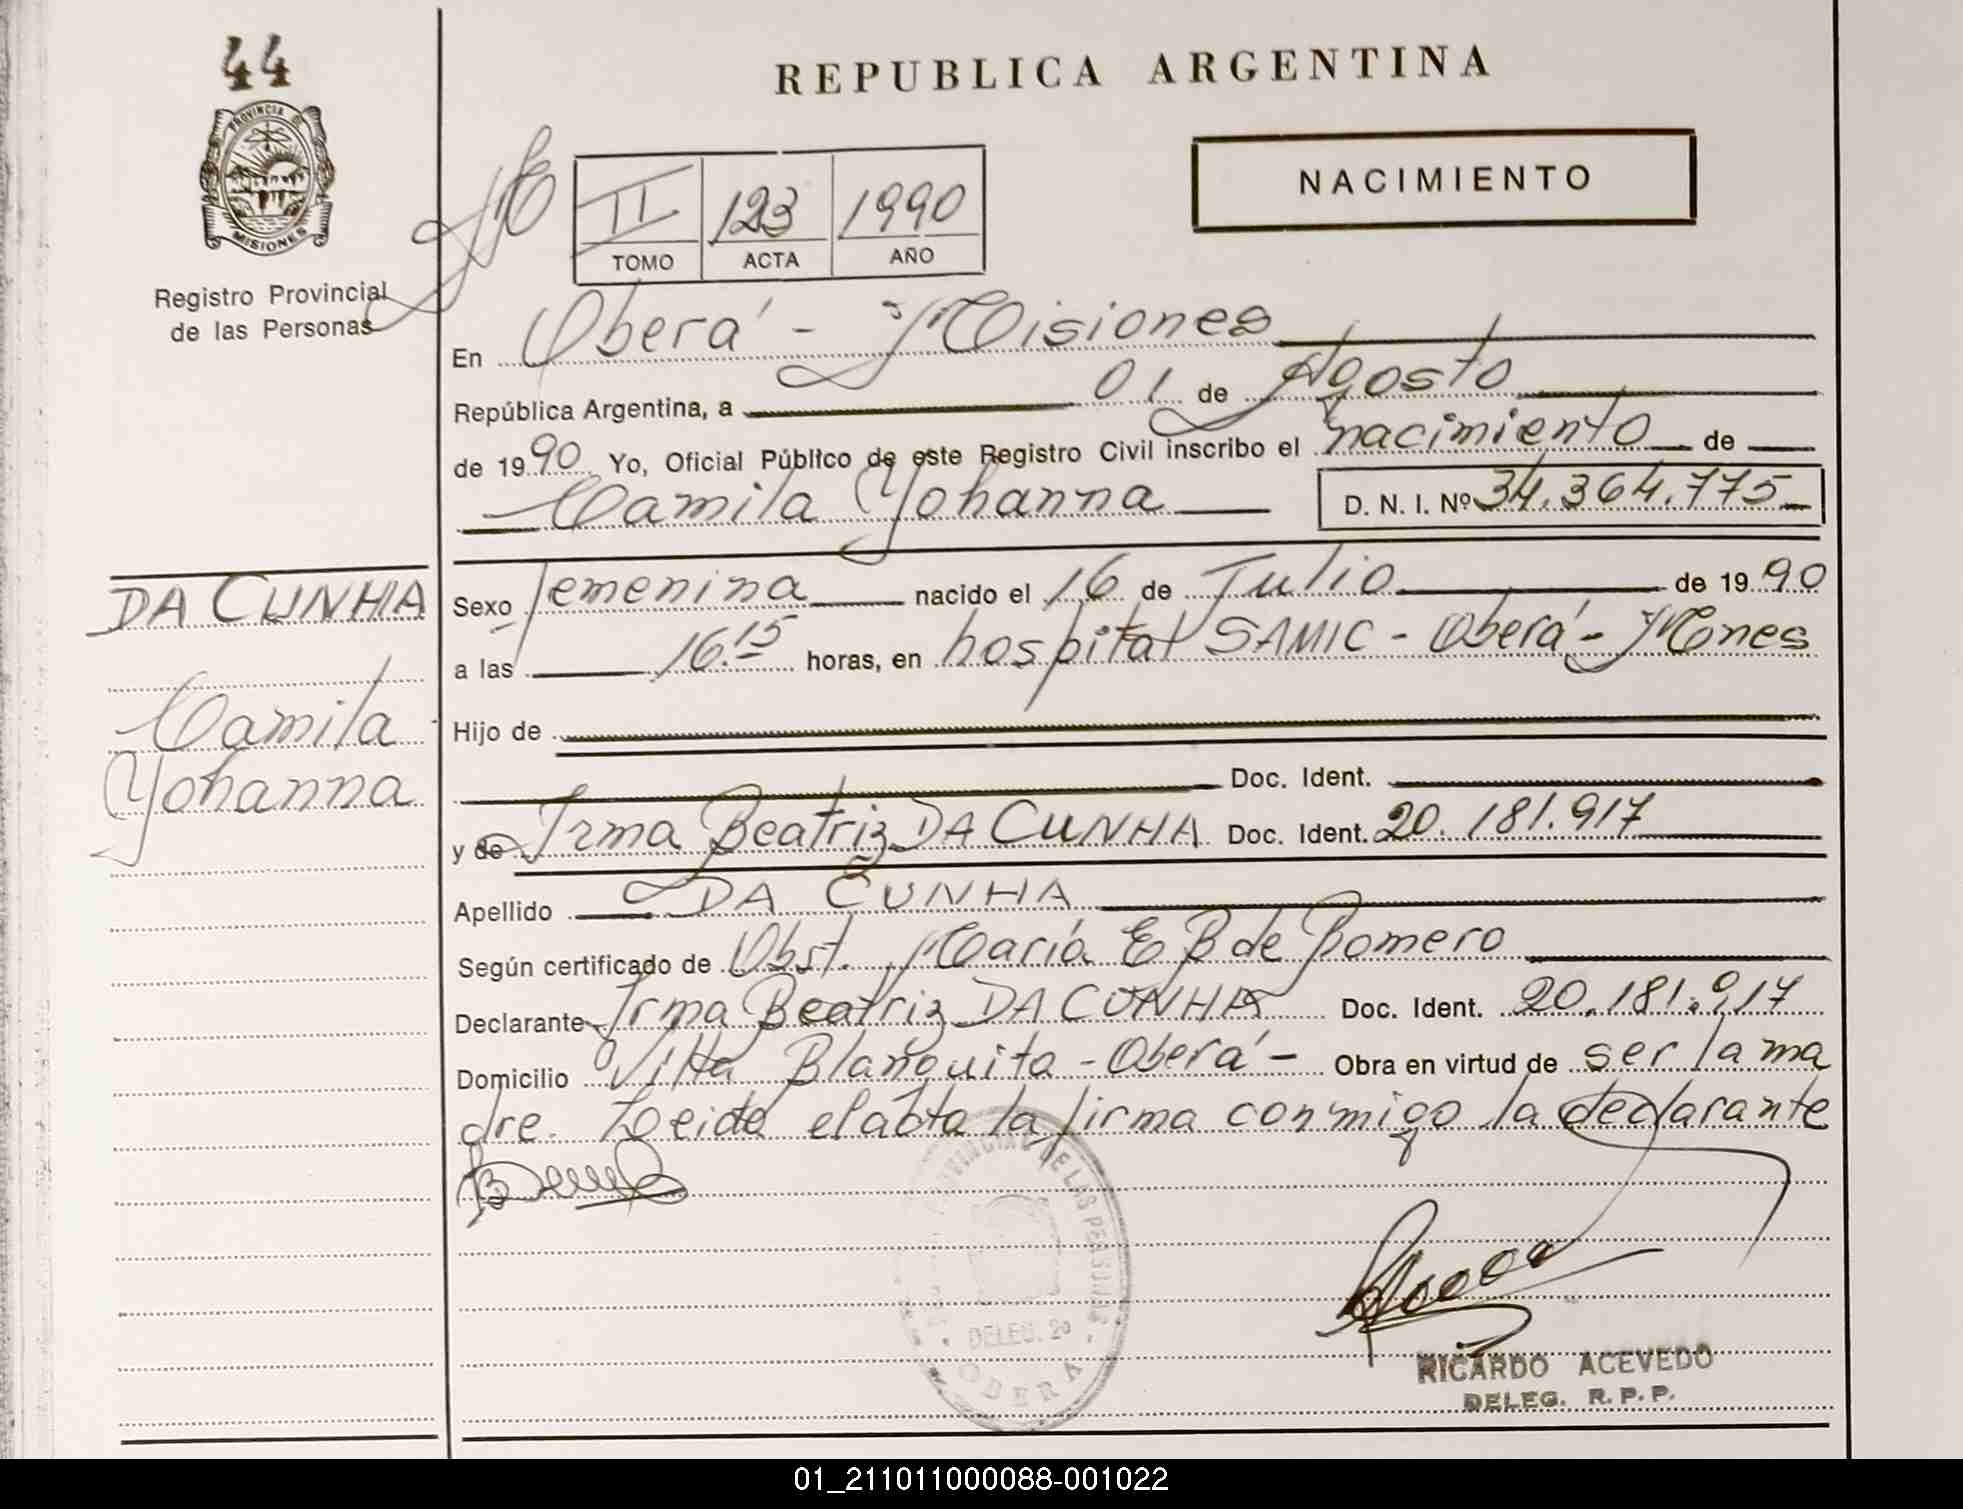 44
REPUBLICA ARGENTINA
PROVINCIA DE
MISIONES
Registro Provincial
de las Personas
II 123 1990
TOMO ACTA AÑO
NACIMIENTO
En Oberá - Misiones
República Argentina, a 01 de Agosto
de 1990 Yo, Oficial Público de este Registro Civil inscribo el nacimiento de
Camila Yohanna D. N. I. Nº 34.364.775
DA CUNHA
Camila
Yohanna
Sexo femenina nacido el 16 de Julio de 1990
a las 16.15 horas, en hospital SAMIC - Oberá - Mnes
Hijo de
Doc. Ident.
y de Irma Beatriz DA CUNHA Doc. Ident. 20.181.917
Apellido DA CUNHA
Según certificado de Obst. María E B de Romero
Declarante Irma Beatriz DA CUNHA Doc. Ident. 20.181.917
Domicilio Villa Blanquita - Oberá - Obra en virtud de ser la ma
dre. Leída el acta la firma conmigo la declarante
DELEG. 20
OBERA
RICARDO ACEVEDO
DELEG. R. P. P.
01_211011000088-001022